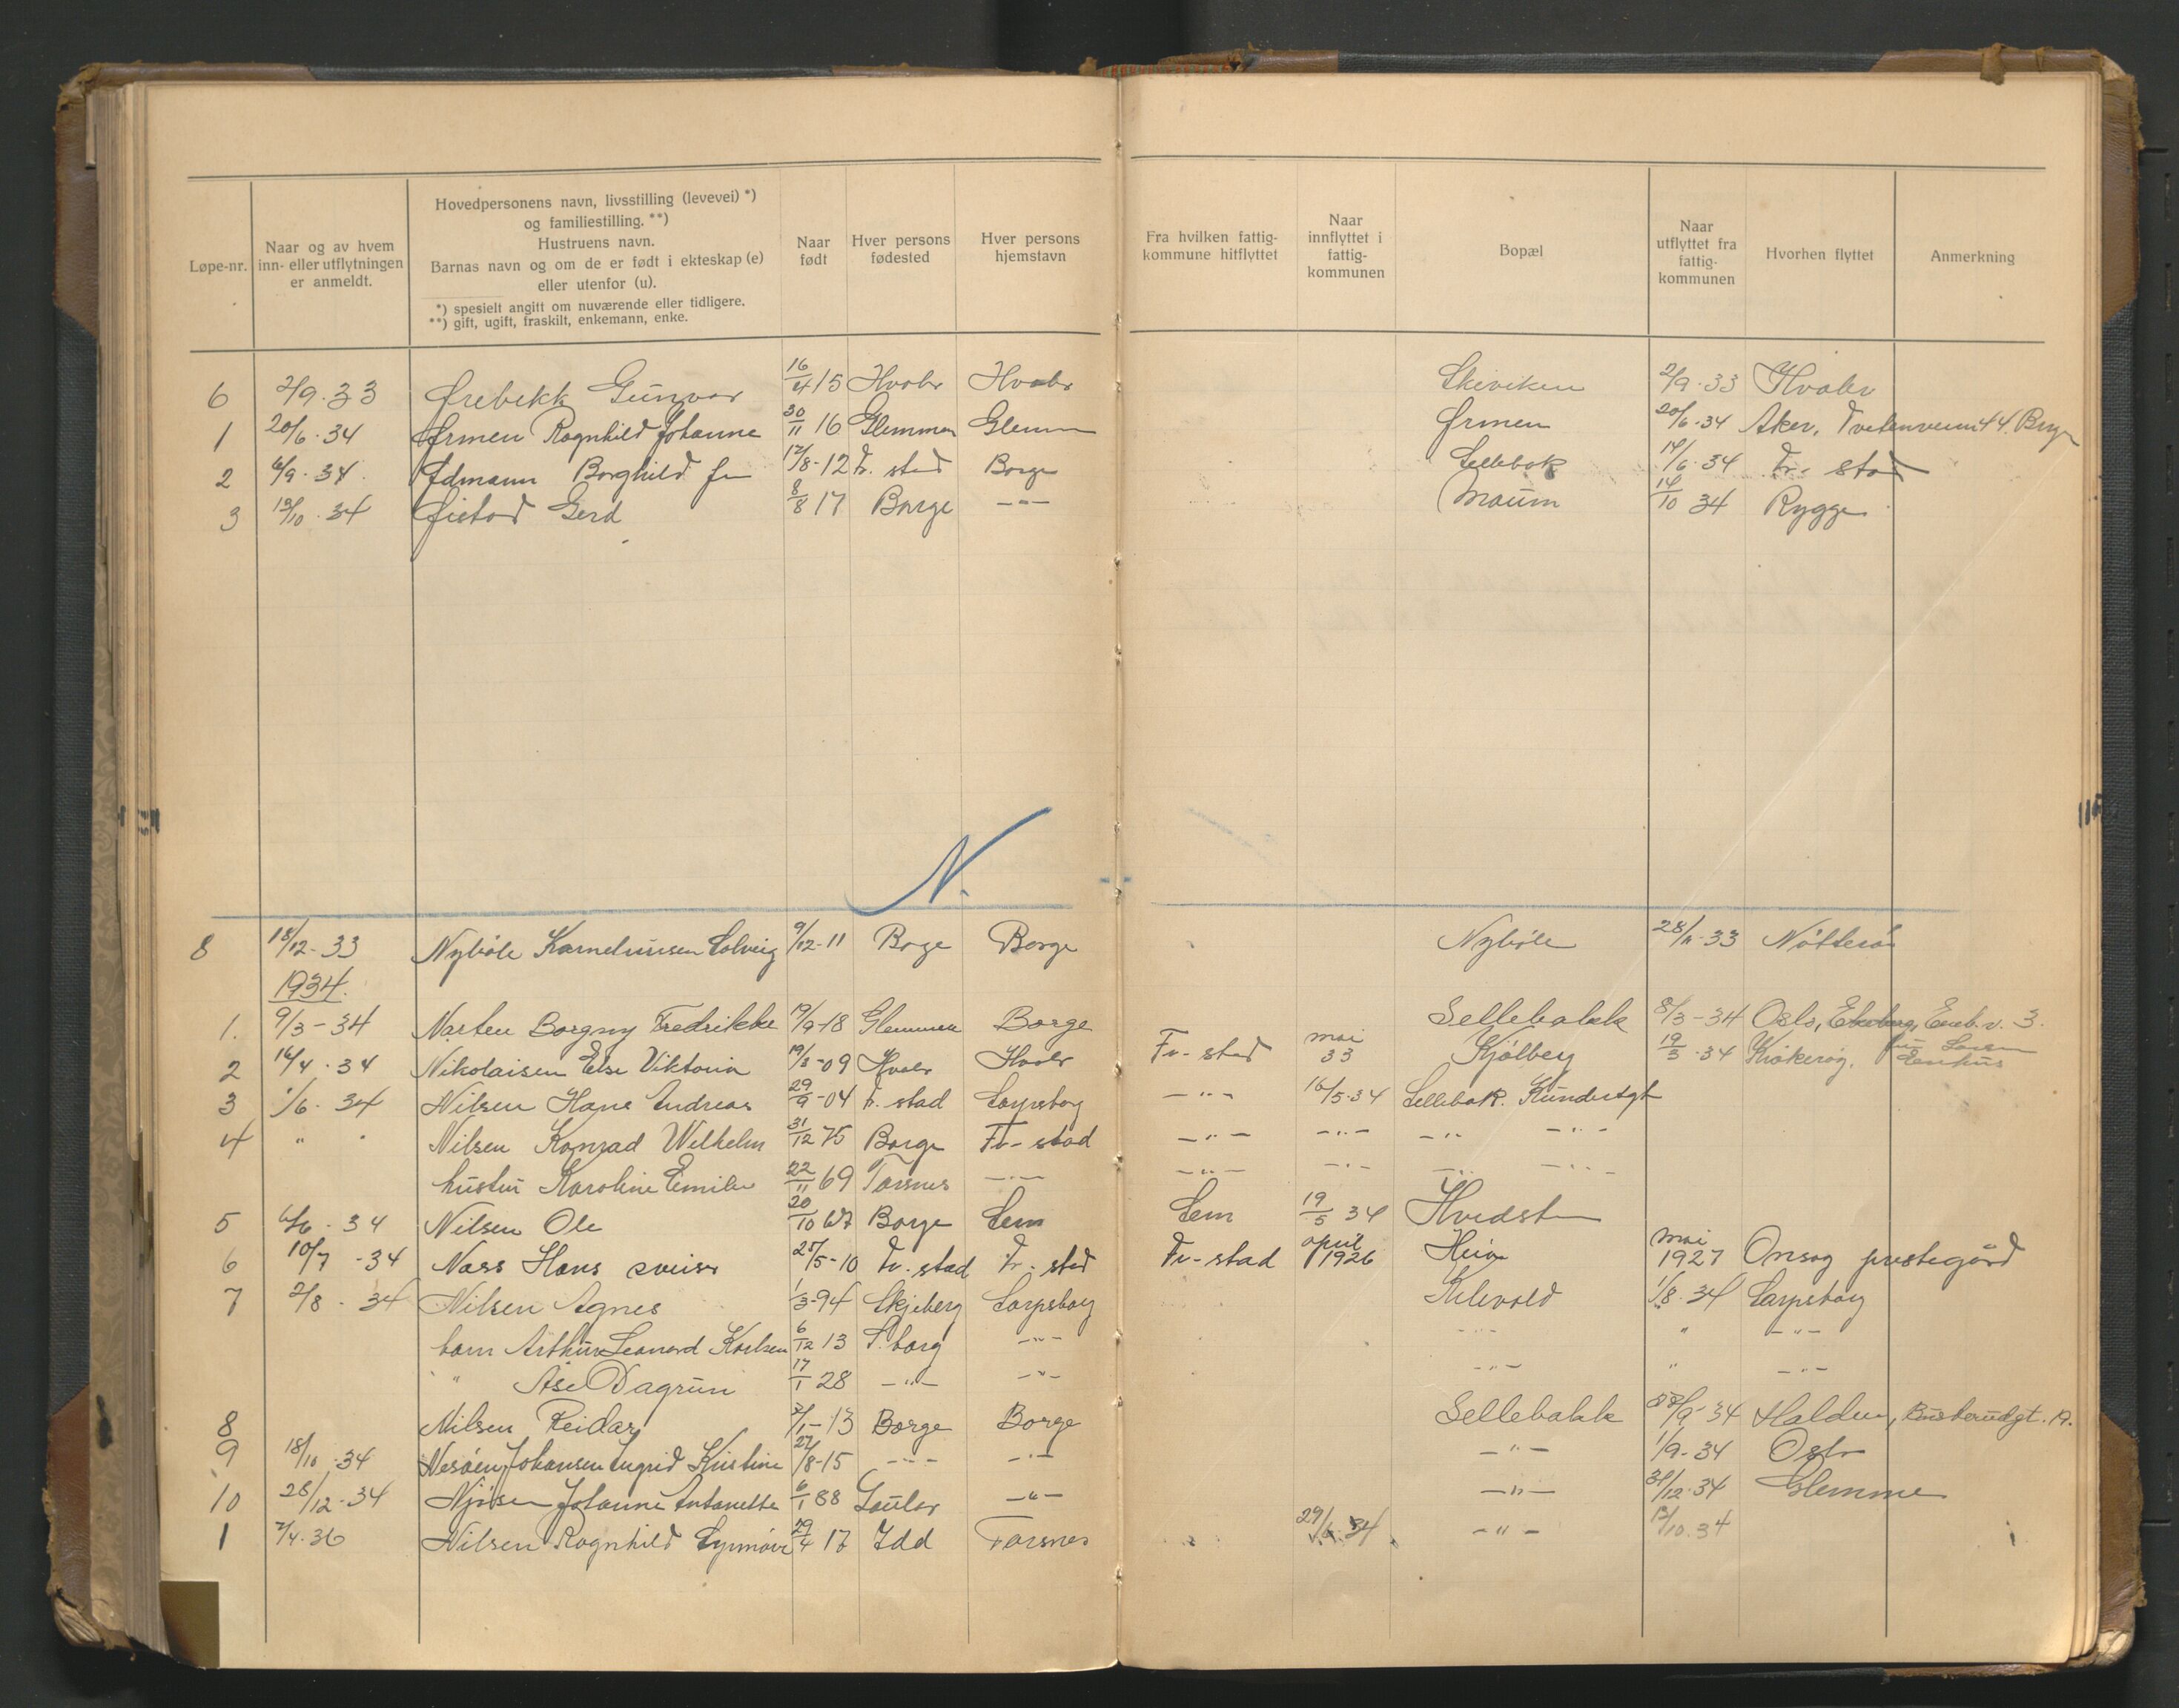 Løpe-nr.
Naar og av hvem
inn- eller utflytningen
er anmeldt.
Hovedpersonens navn, livsstilling (levevei) *)
og familiestilling. **)
Hustruens navn.
Barnas navn og om de er født i ekteskap (e)
eller utenfor (u).
*) spesielt angitt om nuværende eller tidligere.
**) gift, ugift, fraskilt, enkemann, enke.
Naar
født
Hver persons
fødested
Hver persons
hjemstavn
Fra hvilken fattig-
kommune hitflyttet
Naar
innflyttet i
fattig-
kommunen
Bopæl
Naar
utflyttet fra
fattig-
kommunen
Hvorhen flyttet
Anmerkning
6 2/9.33 Ørebekk Gunvor 16/4 15 Hvaler Hvaler Skjeviken 2/9.33 Hvaler
1 20/6.34 Ørmen Ragnhild Johanne 30/11 16 Glemmen Glemmen Ørmen 20/6.34 Aker, Tvetenveien 44. Bryn
2 6/9.34 Ødmann Borghild fr. 12/8-12 Fr. stad Borge Sellebak 14/6.34 Fr. stad
3 13/10.34 Øistad Gerd 8/8 17 Borge -"- Moum 14/10 34 Rygge
N.
8 18/12-33 Nybøle Korneliussen Solveig 9/12-11 Borge Borge Nybøle 28/11-33 Nøtterø
1934.
1. 9/3-34 Narten Borgny Fredrikke 19/9-18 Glemmen Borge Sellebakk 8/3-34 Oslo, Ekeberg, Eneb.v. 3.
2 16/4.34 Nikolaisen Else Viktoria 19/3-09 Hvaler Hvaler Fr-stad mai 33 Kjølberg 19/3.34 Kråkerøy, fru Larsen Enhus
3 1/6.34 Nilsen Hans Andreas 29/9-04 Fr. stad Sarpsborg -"- 16/5-34 Sellebak.
4 " " Nilsen Konrad Wilhelm 31/12 75 Borge Fr-stad -"- -"- -"- -"-
hustru Karoline Emilie 22/11 69 Torsnes -"- -"- -"- -"- -"-
5 6/6.34 Nilsen Ole 20/10 67 Borge Sem Sem 19/5 34 Hvidsten
6 10/7-34 Næss Hans sveiser 25/5-10 Fr. stad Fr-stad Fr-stad april 1926 Heie mai 1927 Onsøy prestegård
7 2/8.34 Nilsen Agnes 1/3-94 Skjeberg Sarpsborg Kilevold 1/8.34 Sarpsborg
barn Arthur Leonard Karlsen 6/12 13 S.borg -"- -"- " -"-
" Åse Dagrun 17/1 28 -"- -"- -"- " -"-
8 Nilsen Reidar 2/1-13 Borge Borge Sellebakk 28/9-34 Halden, Buskerudgt. 19.
9 18/10.34 Nesøen Johansen Ingrid Kristine 27/8-15 -"- -"- -"- 1/9-34 Oslo
10 28/12-34 Johanne Antonette 6/1 88 -"- -"- 31/12.34 Glemmen
1 2/4.36 Nilsen Ragnhild Synnøve 29/4 17 Idd Torsnes 29/6.34 -"- 13/10.34